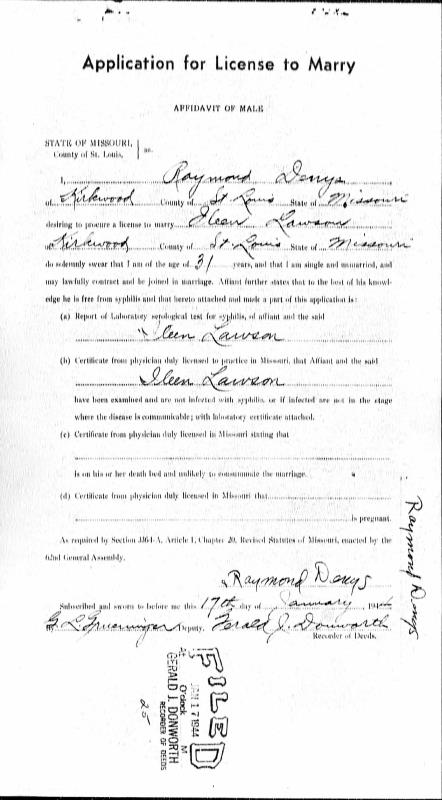 Application for License to Marry
AFFIDAVIT OF MALE
STATE OF MISSOURI,
County of St. Louis, } ss.
I, Raymond Denys
of Kirkwood County of St Louis State of Missouri
desiring to procure a license to marry Ileen Lawson
of Kirkwood County of St Louis State of Missouri
do solemnly swear that I am of the age of 31 years, and that I am single and unmarried, and
may lawfully contract and be joined in marriage. Affiant further states that to the best of his knowl-
edge he is free from syphilis and that hereto attached and made a part of this application is:
(a) Report of Laboratory serological test for syphilis, of affiant and the said
Ileen Lawson
(b) Certificate from physician duly licensed to practice in Missouri, that Affiant and the said
Ileen Lawson
have been examined and are not infected with syphilis, or if infected are not in the stage
where the disease is communicable; with laboratory certificate attached.
(c) Certificate from physician duly licensed in Missouri stating that
is on his or her death bed and unlikely to consummate the marriage.
(d) Certificate from physician duly licensed in Missouri that
is pregnant.
As required by Section 3364-A, Article 1, Chapter 20, Revised Statutes of Missouri, enacted by the
62nd General Assembly.
Raymond Denys
Subscribed and sworn to before me this 17th day of January 1944
G. L. Grueninger Deputy. Gerald J. Donworth
Recorder of Deeds.
Raymond Denys
FILED
JAN 17 1944
At O'clock M
GERALD J. DONWORTH
RECORDER OF DEEDS
25